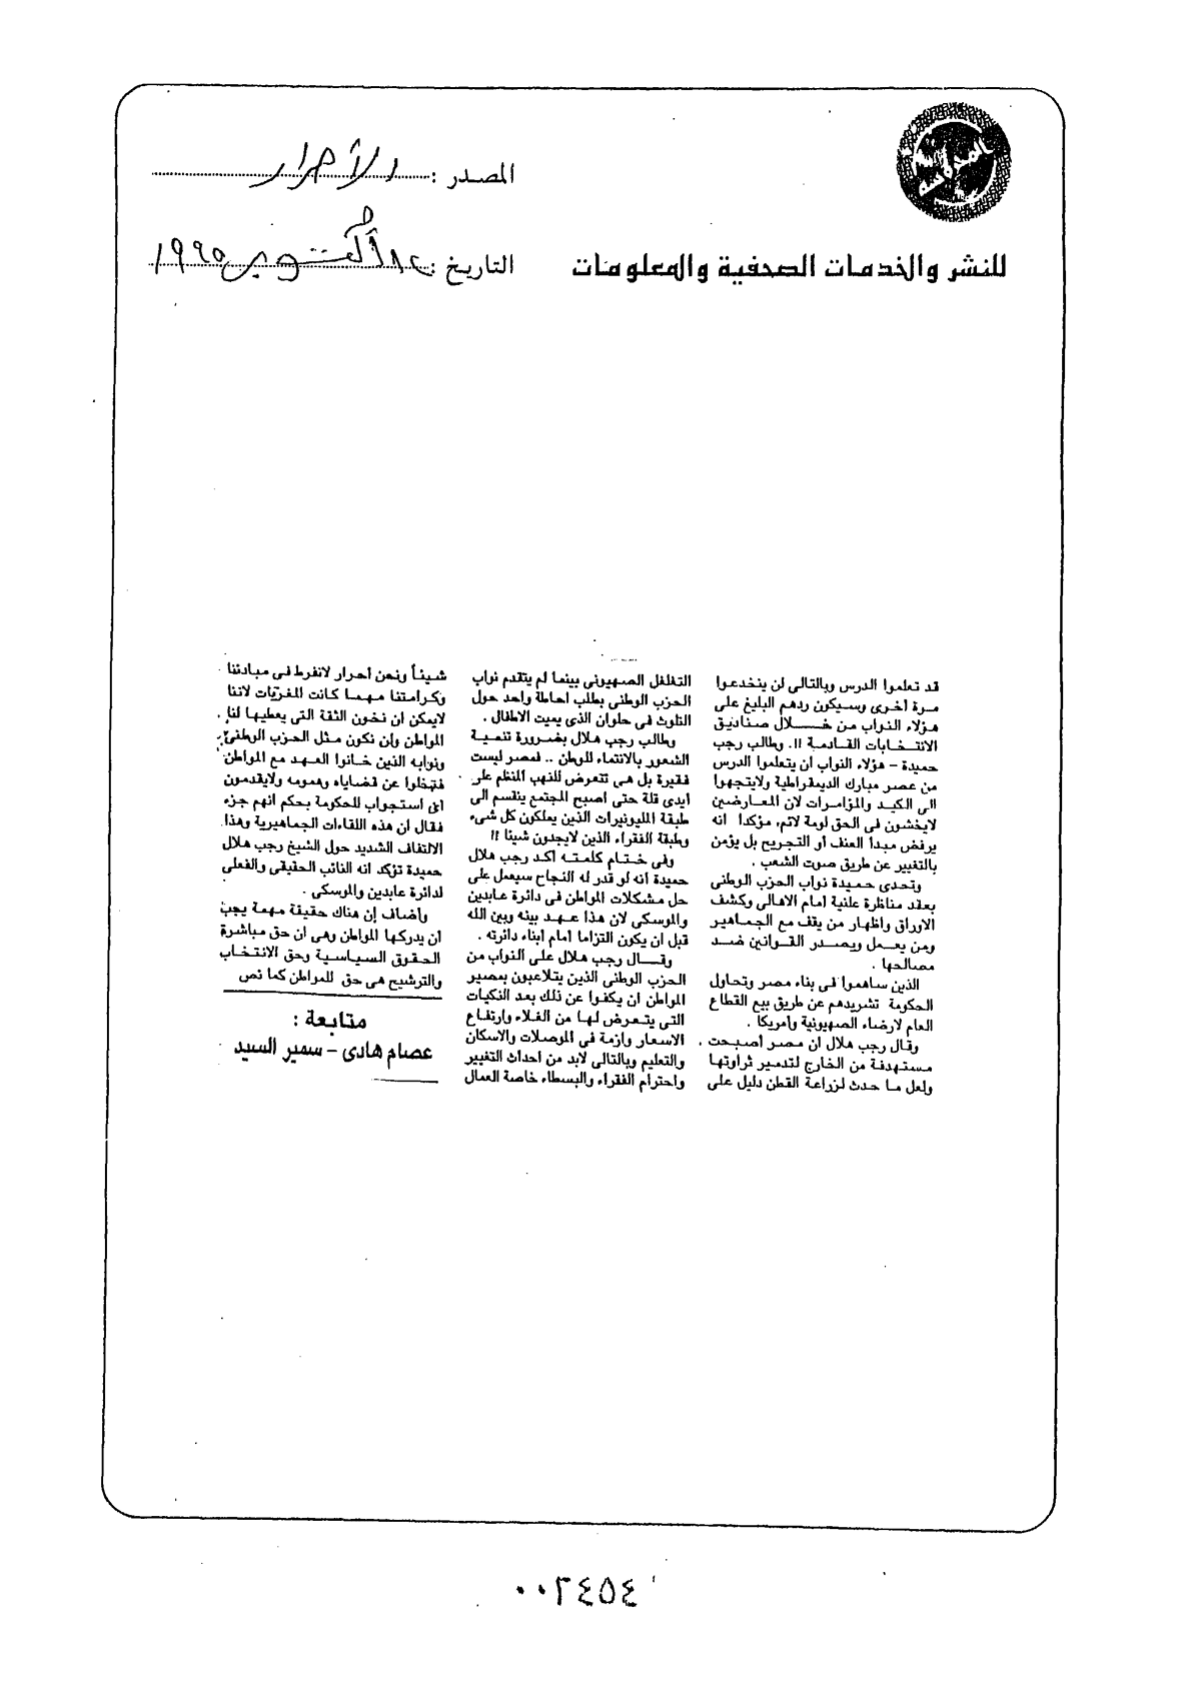 المصدر : الأحرار
للنشر والخدمات الصحفية والمعلومات
التاريخ : أكتوبر ١٩٩٥
قد تعلموا الدرس وبالتالى لن ينخدعوا
مرة أخرى وسيكون ردهم البليغ على
هؤلاء النواب من خلال صناديق
الانتخابات القادمة !!. وطالب رجب
حميدة - هؤلاء النواب ان يتعلموا الدرس
من عصر مبارك الديمقراطية ولايتجهوا
الى الكيد والمؤامرات لان المعارضين
لايخشون فى الحق لومة لائم، مؤكدا انه
يرفض مبدأ العنف أو التجريح بل يؤمن
بالتغيير عن طريق صوت الشعب .
وتحدى حميدة نواب الحزب الوطنى
بعقد مناظرة علنية امام الاهالى وكشف
الاوراق واظهار من يقف مع الجماهير
ومن يعمل ويصدر القوانين ضد
مصالحها .
الذين ساهموا فى بناء مصر وتحاول
الحكومة تشريدهم عن طريق بيع القطاع
العام لارضاء الصهيونية وأمريكا .
وقال رجب هلال ان مصر أصبحت
مستهدفة من الخارج لتدمير ثراوتها
ولعل ما حدث لزراعة القطن دليل على
التغلغل الصهيونى بينما لم يتقدم نواب
الحزب الوطنى بطلب احاطة واحد حول
التلوث فى حلوان الذى يميت الاطفال .
وطالب رجب هلال بضرورة تنمية
الشعور بالانتماء للوطن .. لمصر ليست
فقيرة بل هى تتعرض للنهب المنظم على
أيدى قلة حتى أصبح المجتمع ينقسم الى
طبقة المليونيرات الذين يملكون كل شىء
وطبقة الفقراء الذين لايجدون شيئا !!
وفى ختام كلمته أكد رجب هلال
حميدة انه لو قدر له النجاح سيعمل على
حل مشكلات المواطن فى دائرة عابدين
والموسكى لان هذا عهد بينه وبين الله
قبل ان يكون التزاما أمام ابناء دائرته .
وقال رجب هلال على النواب من
الحزب الوطنى الذين يتلاعبون بمصير
المواطن ان يكفوا عن ذلك بعد النكبات
التى يتعرض لها من الغلاء وارتفاع
الاسعار وازمة فى الموصلات والاسكان
والتعليم وبالتالى لابد من احداث التغيير
واحترام الفقراء والبسطاء خاصة العمال
شيئاً ونحن أحرار لانفرط فى مبادئنا
وكرامتنا مهما كانت المغريات لاننا
لايمكن ان نخون الثقة التى يعطيها لنا
المواطن وإن نكون مثل الحزب الوطنى
ونوابه الذين خانوا العهد مع المواطن
فتخلوا عن قضاياه وهمومه ولايقدمون
اى استجواب للحكومة بحكم انهم جزء
فقال ان هذه اللقاءات الجماهيرية وهذا
الالتفاف الشديد حول الشيخ رجب هلال
حميدة تؤكد انه النائب الحقيقى والفعلى
لدائرة عابدين والموسكى .
وأضاف إن هناك حقيقة مهمة يجب
أن يدركها المواطن وهى ان حق مباشرة
الحقوق السياسية وحق الانتخاب
والترشيح هى حق للمواطن كما نص
متابعة :
عصام هادى - سمير السيد
٠٠٢٤٥٤